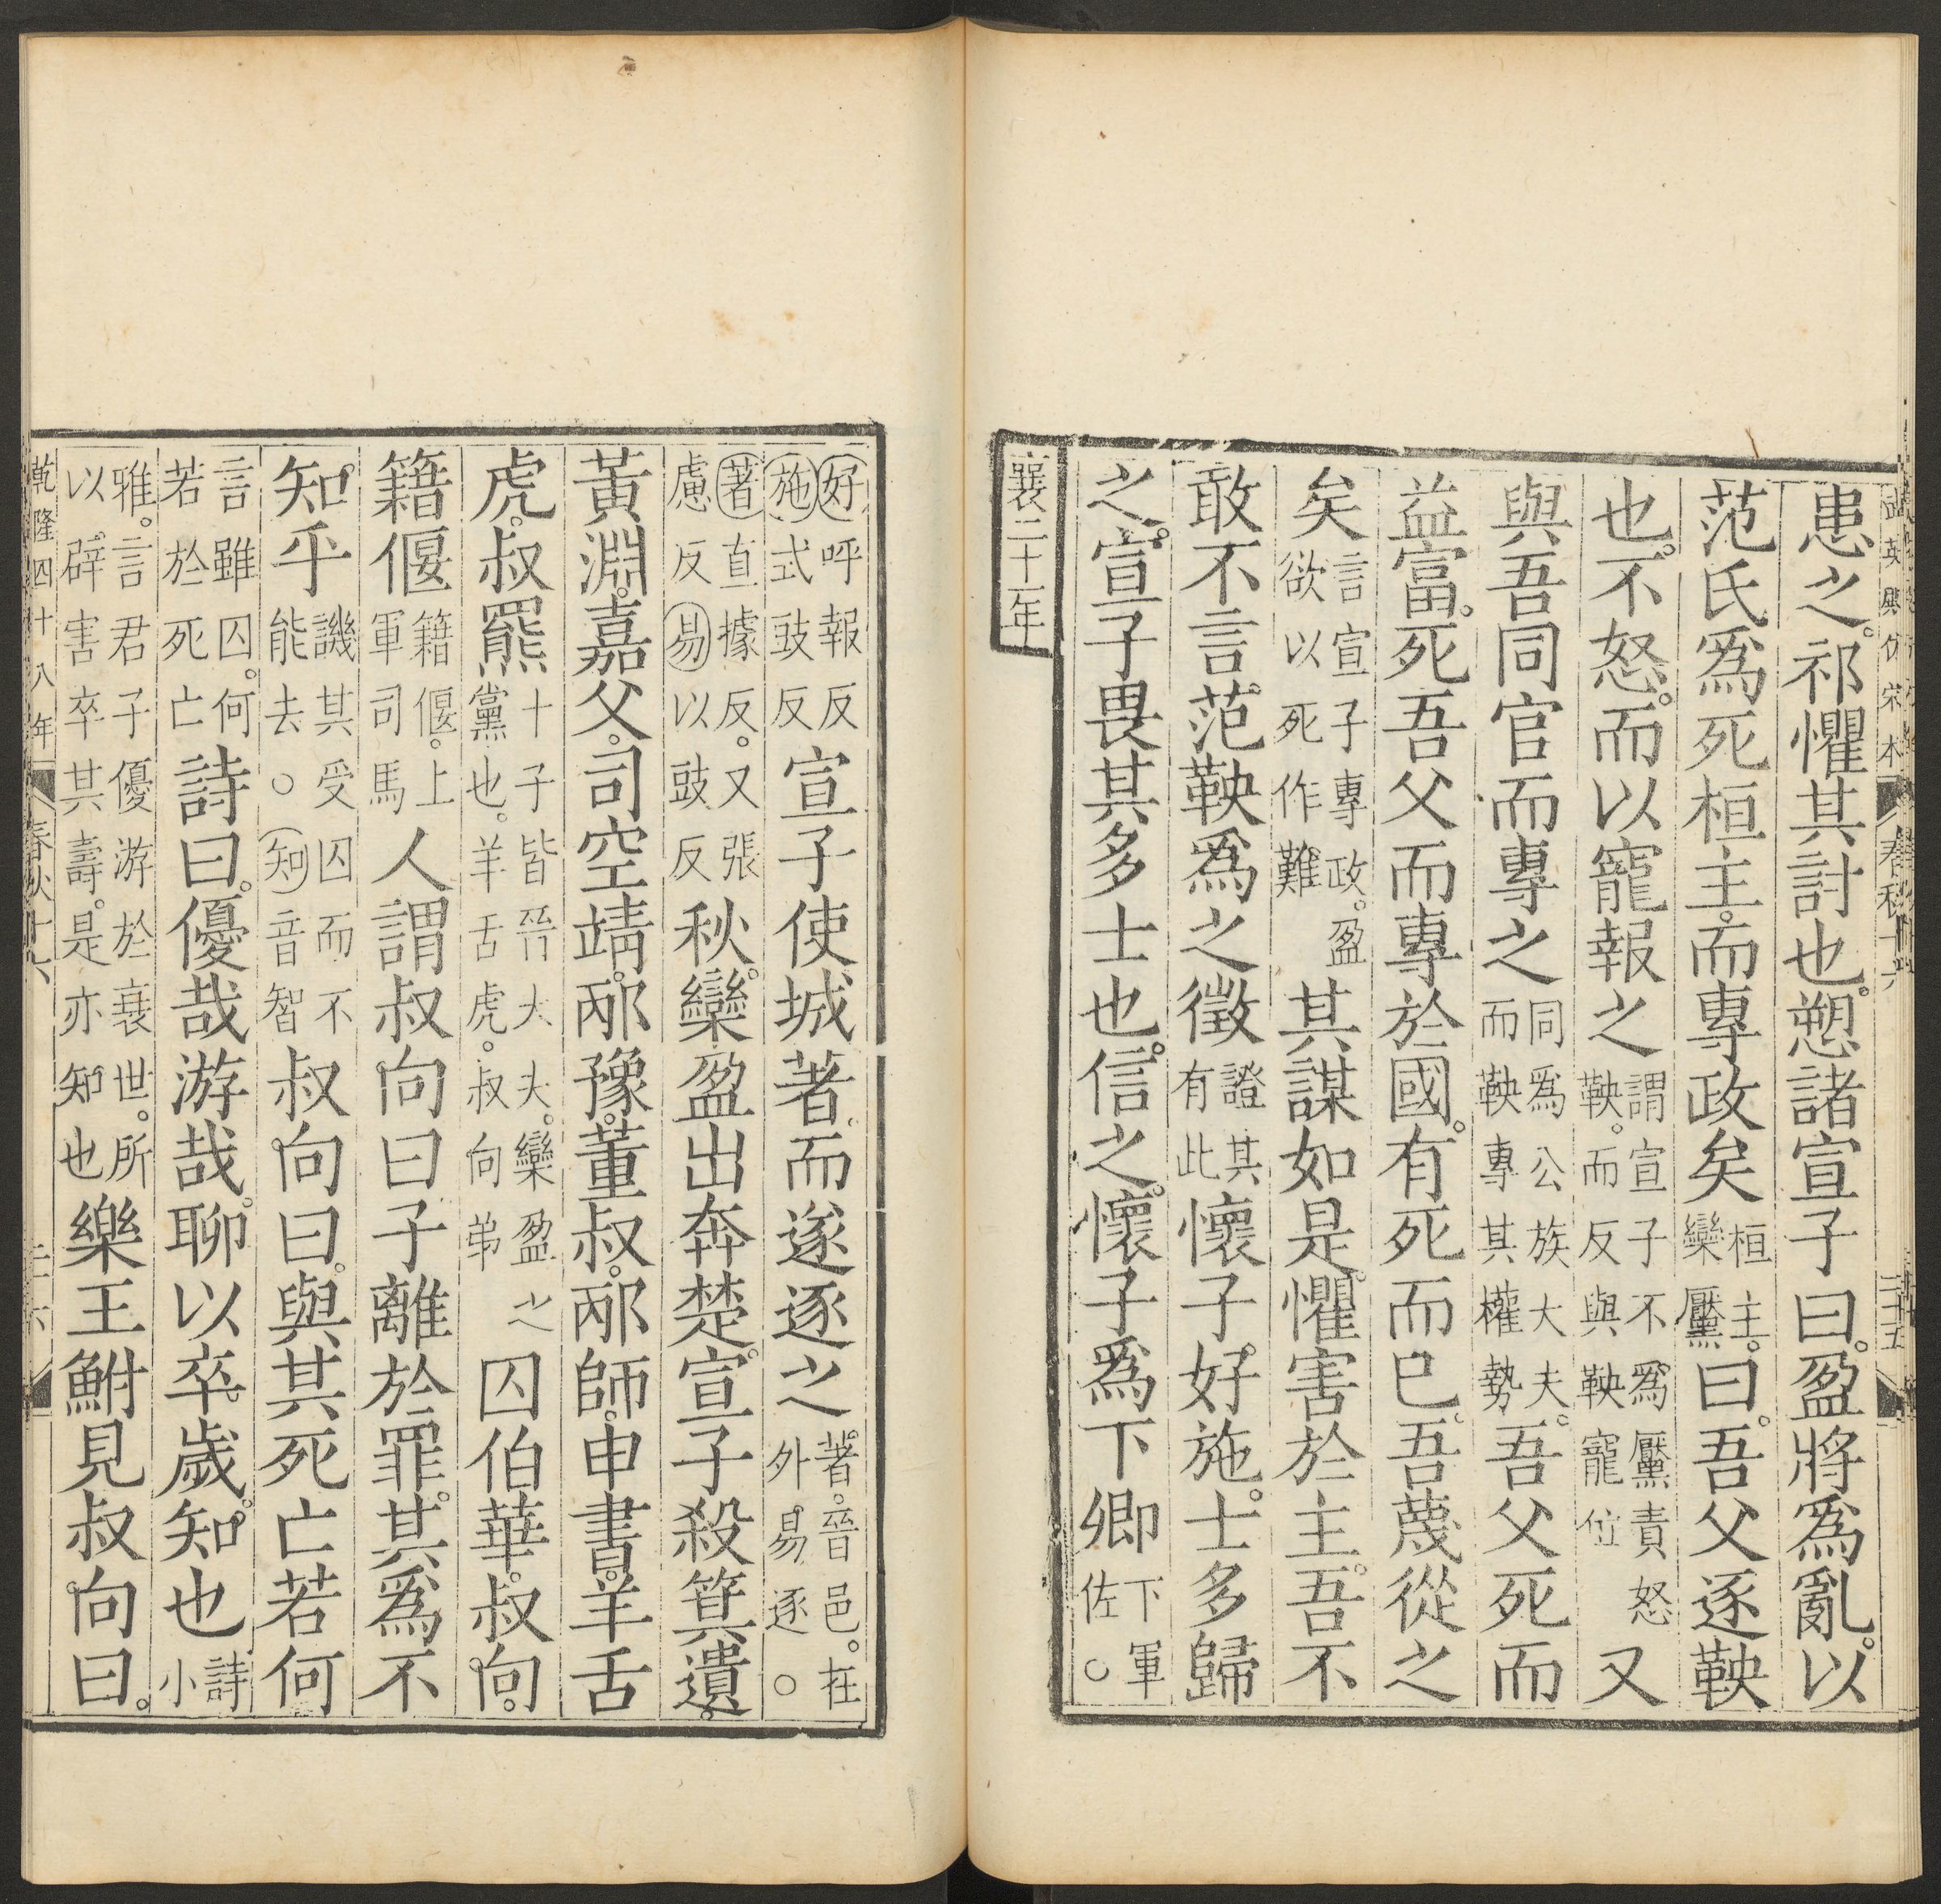 患之祁懼其討也愬諸宣子曰盈將爲亂以
范氏爲死桓主而專政矣桓主欒黶曰吾父逐鞅
也不怒而以寵報之謂宣子不爲黶責怒鞅而反與鞅寵位又
與吾同官而專之同爲公族大夫而鞅專其權勢吾父死而
益富死吾父而專於國有死而已吾蔑從之
矣言宣子專政盈欲以死作難其謀如是懼害於主吾不
敢不言范鞅爲之徵證其有此懷子好施士多歸
之宣子畏其多士也信之懷子爲下卿下軍佐○
襄二十一年
好呼報反施式豉反宣子使城著而遂逐之著晉邑在外易逐○
著直據反又張慮反易以豉反秋欒盈出奔楚宣子殺箕遺
黃淵嘉父司空靖邴豫董叔邴師申書羊舌
虎叔羆十子皆晉大夫欒盈之黨也羊舌虎叔向弟囚伯華叔向
籍偃籍偃上軍司馬人謂叔向曰子離於罪其爲不
知乎譏其受囚而不能去○知音智叔向曰與其死亡若何
言雖囚何若於死亡詩曰優哉游哉聊以卒歲知也詩小
雅言君子優游於衰世所以辟害卒其壽是亦知也樂王鮒見叔向曰
乾隆四十八年 春秋十六 二十六